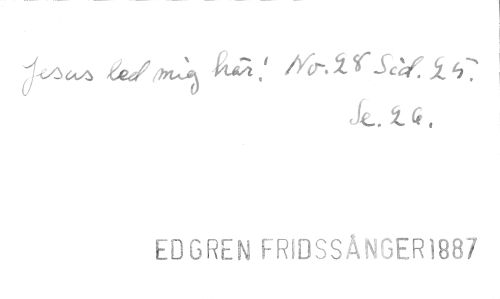 Jesus led mig här! No. 28 Sid. 25.
Se. 26.
EDGREN FRIDSSÅNGER 1887